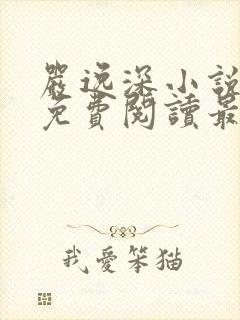 嚴逸深小說
免費閱讀最
我愛笨猫